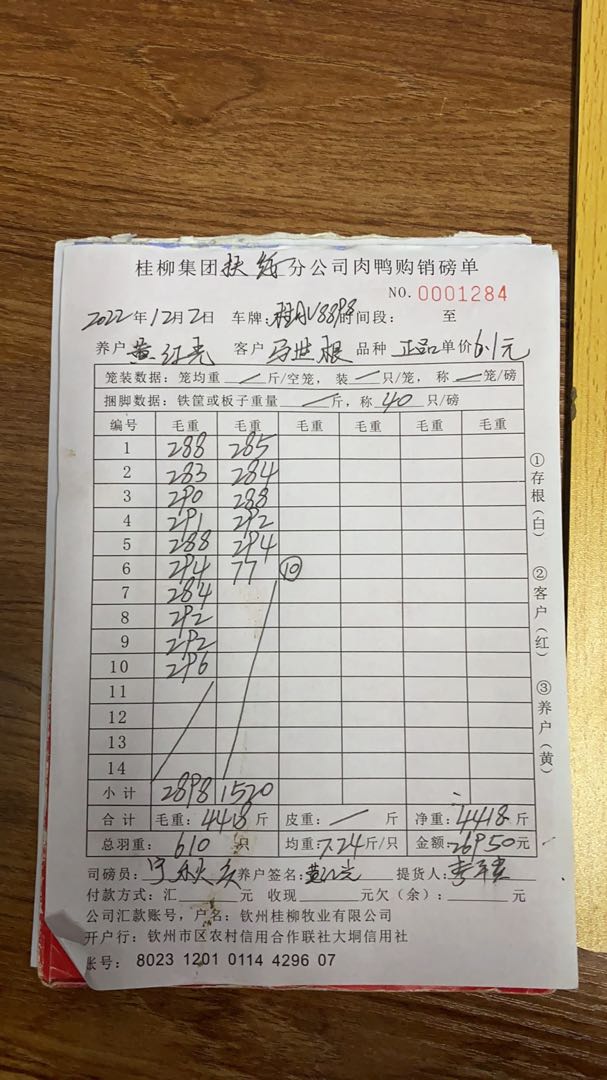 桂柳集团扶绥分公司肉鸭购销磅单
NO.0001284
2022年12月2日 车牌: 时间段: 至
养户黄红亮 客户马世根 品种 正品 单价6.1元
笼装数据: 笼均重 / 斤/空笼, 装 / 只/笼, 称 / 笼/磅
捆脚数据: 铁筐或板子重量 / 斤, 称 40 只/磅
编号 毛重 毛重 毛重 毛重 毛重 毛重
1 288 285
2 283 284
3 290 288
4 291 292
5 288 294
6 294 77 ⑩
7 284
8 292
9 292
10 296
11
12
13
14
小计 2898 1520
合计 毛重: 4418 斤 皮重: / 斤 净重: 4418 斤
总羽重: 610 只 均重: 7.24斤/只 金额: 26950元
司磅员: 养户签名: 黄红亮 提货人:
付款方式: 汇 元 收现 元欠(余): 元
公司汇款账号, 户名: 钦州桂柳牧业有限公司
开户行: 钦州市区农村信用合作联社大垌信用社
账号: 8023 1201 0114 4296 07
①存根(白)
②客户(红)
③养户(黄)